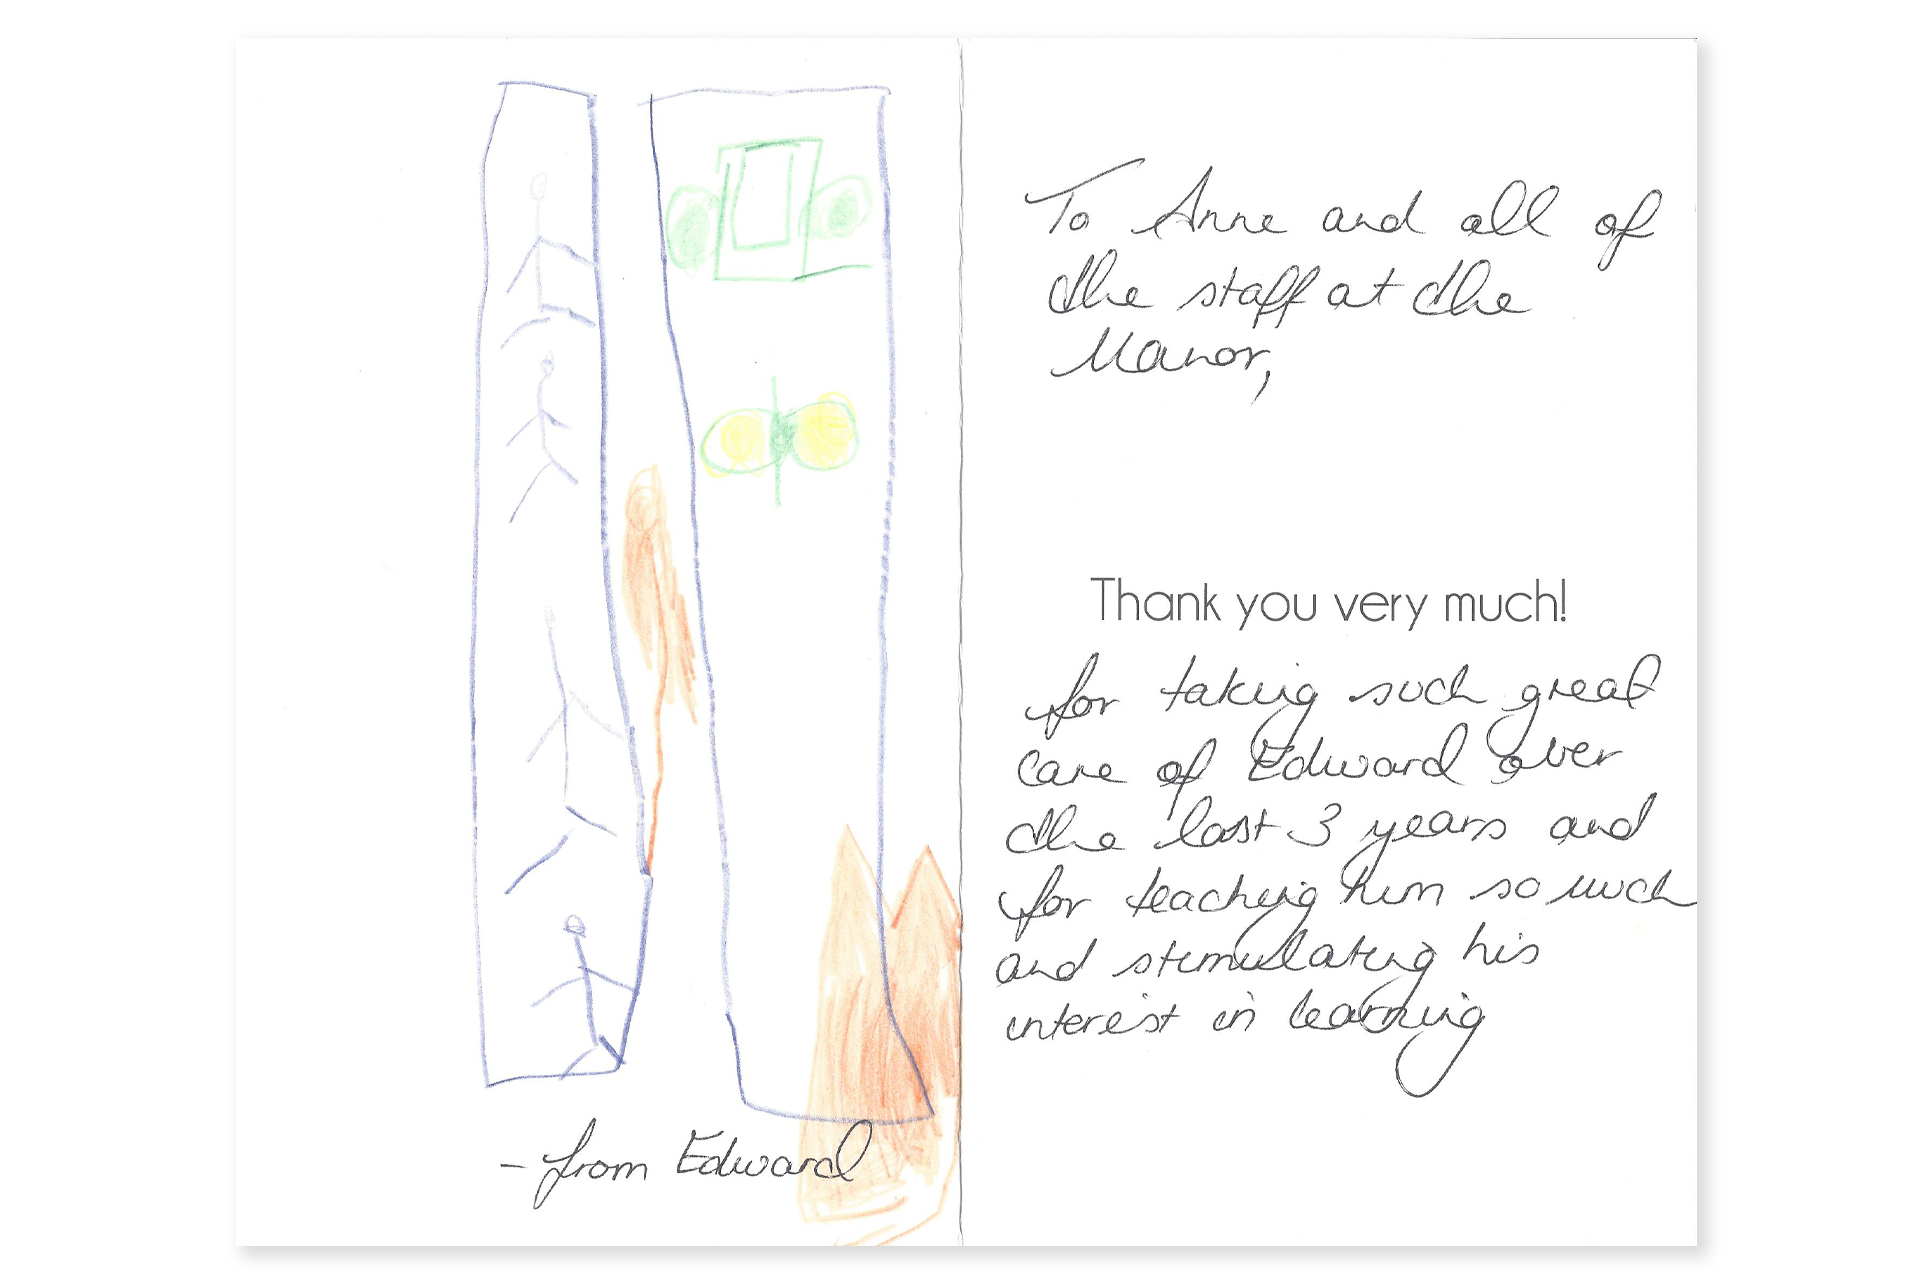 - from Edward
To Anne and all of
the staff at the
Manor,
Thank you very much!
for taking such great
care of Edward over
the last 3 years and
for teaching him so much
and stimulating his
interest in learning